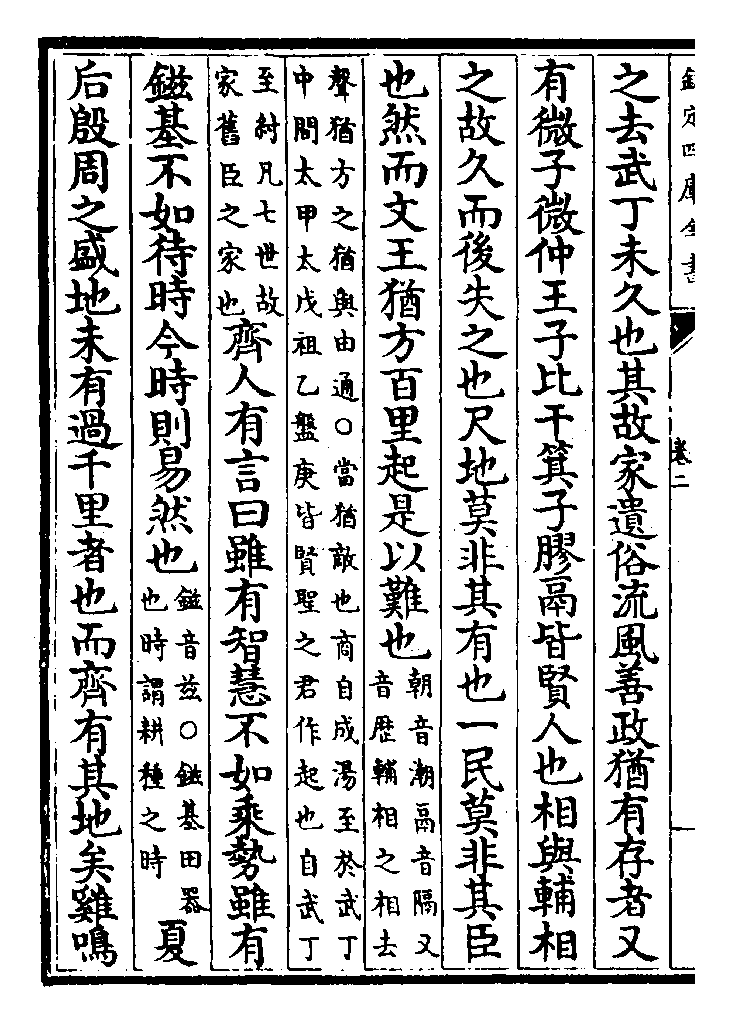 欽定四庫全書 卷二
之去武丁未久也其故家遺俗流風善政猶有存者又
有微子微仲王子比干箕子膠鬲皆賢人也相與輔相
之故久而後失之也尺地莫非其有也一民莫非其臣
也然而文王猶方百里起是以難也朝音潮鬲音隔又音歷輔相之相去
聲猶方之猶與由通○當猶敵也商自成湯至於武丁
中間太甲太戊祖乙盤庚皆賢聖之君作起也自武丁
至紂凡七世故家舊臣之家也齊人有言曰雖有智慧不如乘勢雖有
鎡基不如待時今時則易然也鎡音兹○鎡基田器也時謂耕種之時夏
后殷周之盛地未有過千里者也而齊有其地矣雞鳴